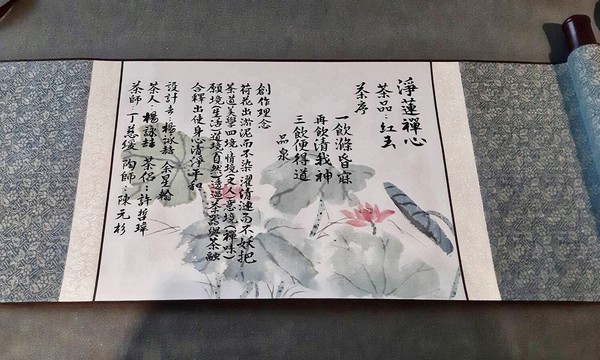 淨蓮禪心
茶品：紅玉
茶序
一飲滌昏寐
再飲清我神
三飲便得道
品泉
創作理念
荷花出淤泥而不染濯清漣而不妖把
茶道美學四境情境(文人)意境(禪味)
願境(生活)道境(自然)透過茶器與茶融
合釋出使身心清淨平和
設計者：楊詠喆 余星
茶人：楊詠喆 茶侶：許哲瑋
茶師：丁慧 陶師：陳元杉